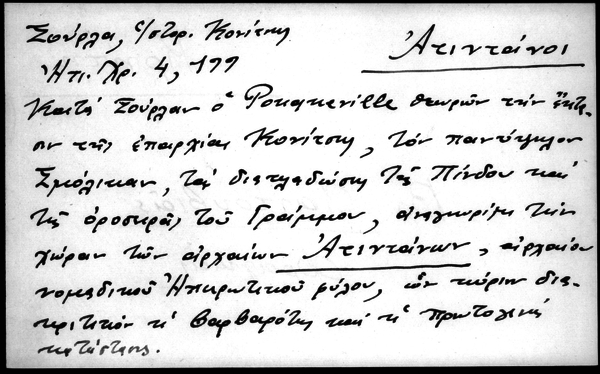 Σούρλα, Ἱστορ. Κονίτσης
Ἀτιντᾶνοι
Ἠπ. Χρ. 4, 199
Κατά Σούρλαν ὁ Pouqueville θεωρῶν τήν ἔκτα-
σιν τῆς ἐπαρχίας Κονίτσης, τόν πανύψηλον
Σμόλικαν, τάς διακλαδώσεις τῆς Πίνδου καί
τῆς ὀροσειρᾶς τοῦ Γράμμου, ἀναγνωρίζει τήν
χώραν τῶν ἀρχαίων Ἀτιντάνων, ἀρχαίου
νομαδικοῦ Ἠπειρωτικοῦ φύλου, ὧν κύριον δια-
κριτικόν ἡ βαρβαρότης καί ἡ πρωτογενής
κατάστασις.